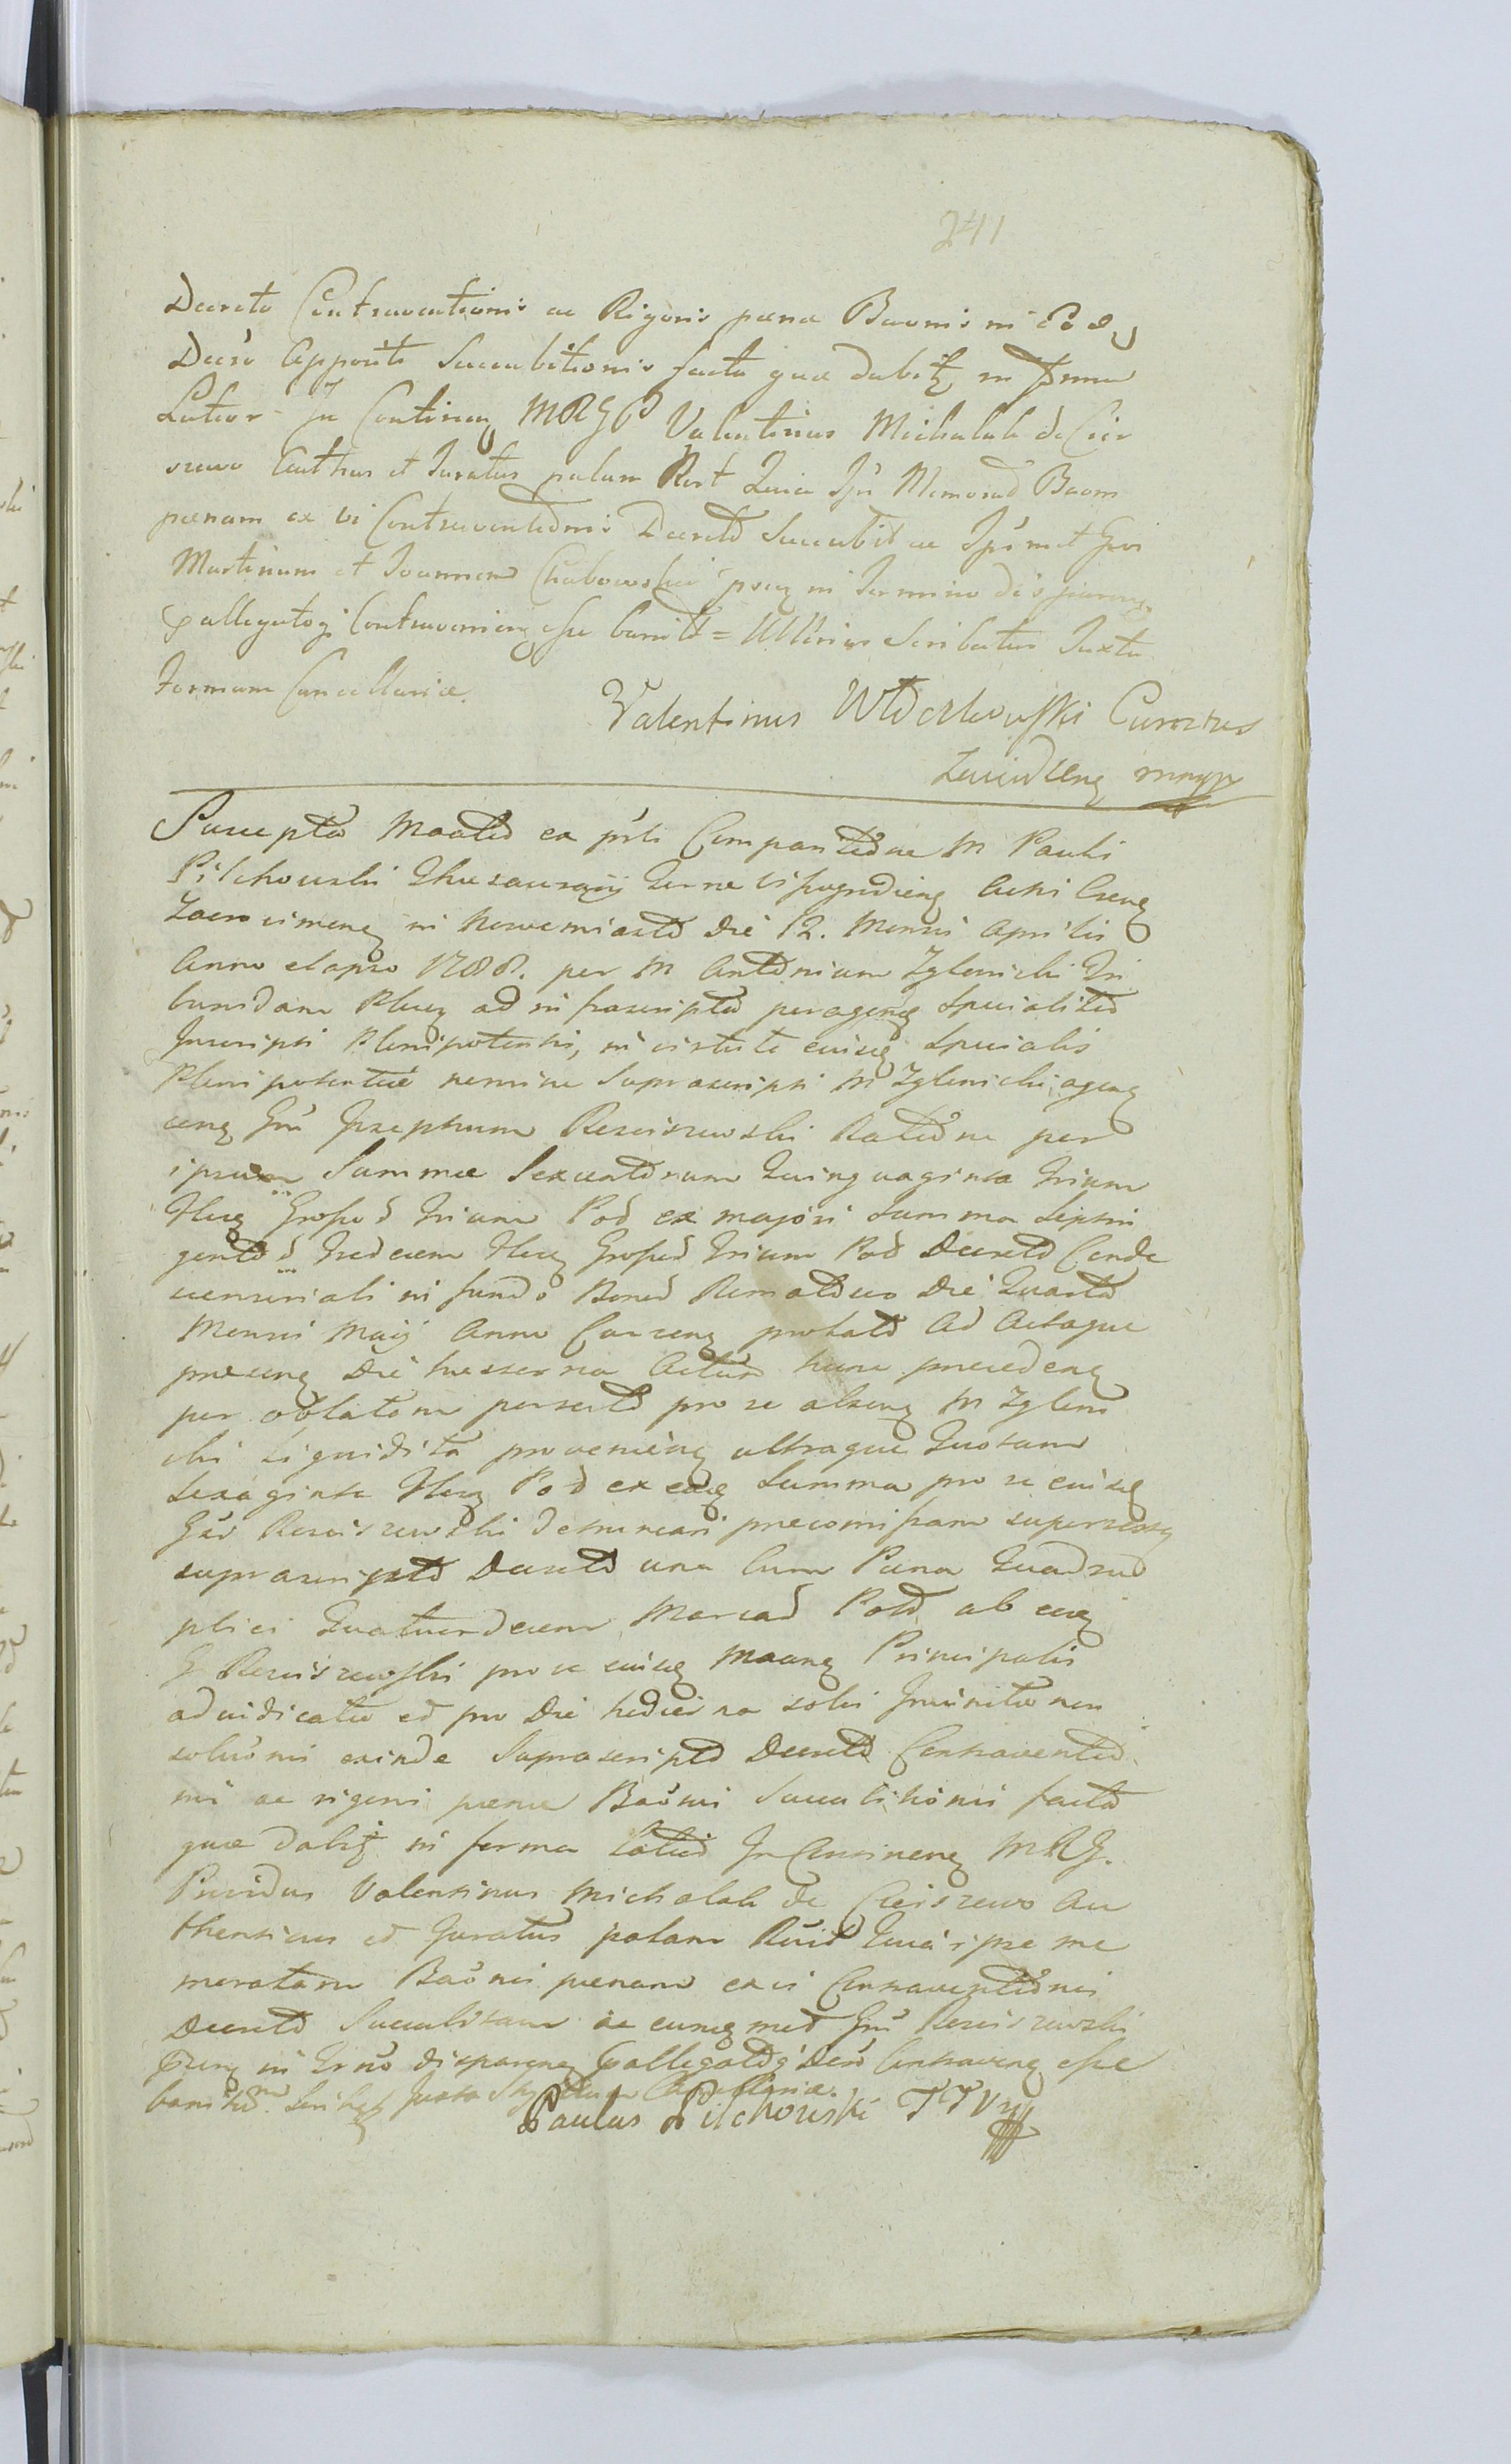 241
Decreto Contraventionis ac Rigoris pœnæ Baonis in eod
Decrō Appositi Succubitionis facta quæ dabitz in forma
Latior In Continen MRGP Valentinus Michalak de Cier
szewo Authus et Juratus palam Rert Quia Ipū Memorat Baom
pœnam ex vi Contraventionis Decreto Succubit ac Ipsmet Gros
Martinum et Joannem Chabowskie in Termino
allegatoq Contravenien esse banito = Ulterius Scribatur Juxta
Formam Cancellariæ.
Valentinus Curatus
mmpp
Suscepta Maatio ex prti Comparitione M Pauli
Pilchowski Thesaurarij Terræ Vissogrodien Actui Csen
Zacrocimen in Nowemiasto die 12. Mensis Aprilis
Anno elapso 1788. per M Antonium Zglenicki Tri
bunidam Plocen ad infrascripta peragenda Specialiter
Inscripti Plenipotentis, in virtute cuiusq Specialis
Plenipotentiæ nomine Suprascripti M Zglenicki agen
cen Gru Josephum Resciszewski Ratione per
ipsum Summæ Sexcentorum Quinquaginta trium
Floren Grossos trium Pol ex majori Summa Septin
gento d tredecem Floren Grossos trium Pol Decreto Conde
scensoriali in fundo Bonor Romatowo Die Quarta
Mensis Maij Anno Curren prolato Ad Actaque
præsen die hesterna Actum hunc præceden
per oblatam porrecto pro se alsen M Zgleni
cki Liquidita provenien ultraque Quotam
Sexaginta Floren Pol ex eadem Summa pro se cuisq
Gro Resciszewski defuncari præcomissam superesse
suprascripto Decreto una Cum Pœna Quadru
plici Quatuordecem Marcar Pol ab eoq
G Resciszewski pro se cuisq Maanq Principalis
adiudicatæ et pro Die hodierna solvi Iniunctæ non
solutionis exinde Suprascripto Decreto Contraventio
nis ac rigoris pœnæ Baōnis Succubitionis facta
quæ dabitz in forma Latiori In Continen MRG.
Providus Valentinus Michalak de Cierszewo Au
thenticus et Juratus palam Rēcit Quia ipse me
moratam Baōnis pœnam ex vi Contraventionis
Decreto Succubitam ac eumq met Gru Resciszewski
in Trnō disparen allegatoq Decrō Contraven esse
banitum Scribatz Juxta Stylum Cancellariæ.
Paulus Pilchowski TTW